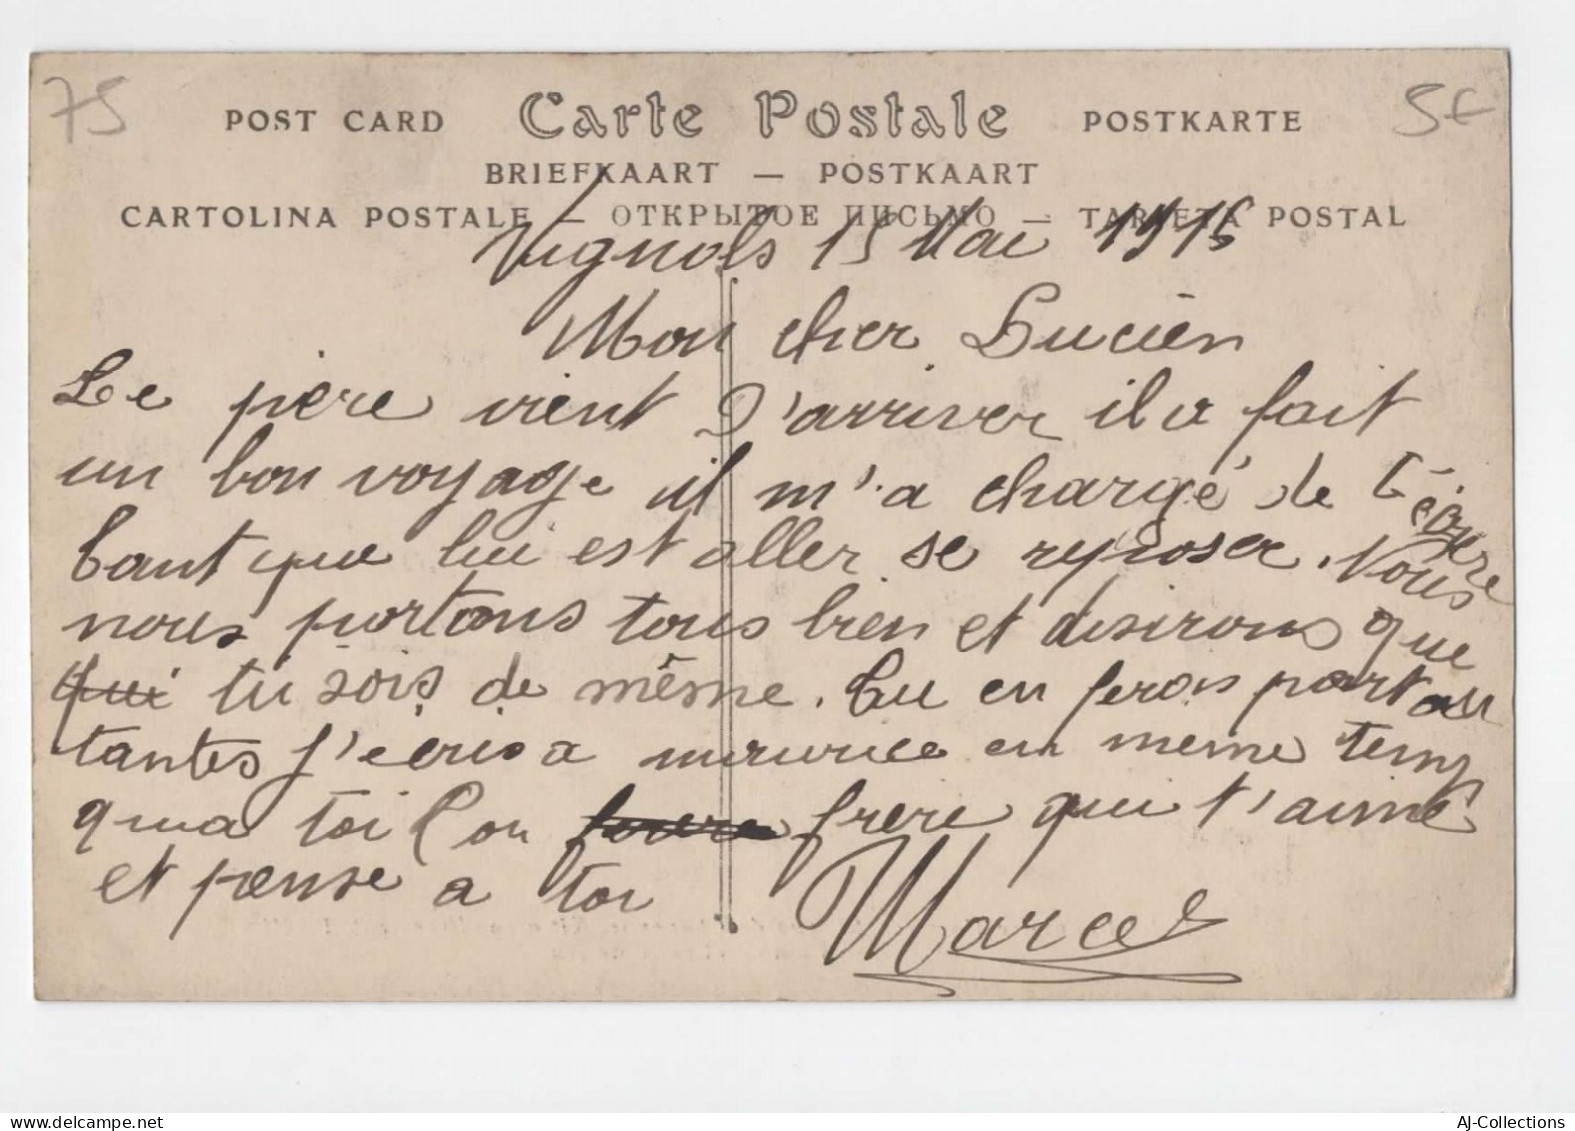 75
5€
POST CARD Carte Postale POSTKARTE
BRIEFKAART — POSTKAART
CARTOLINA POSTALE — ОТКРЫТОЕ ПИСЬМО — TARJETA POSTAL
Vignols 15 Mai 1915
Mon cher Lucien
Le père vient d'arriver il a fait
un bon voyage il m'a chargé de t'écrire
tant que lui est aller se reposer. Nous
nous portons tous bien et desirons que
qui tu sois de même. Tu en feras part au
tantes j'ecris a maurice en meme temp
qua toi Ton frere qui t'aime
et pense a toi
Marcel
AJ-Collections